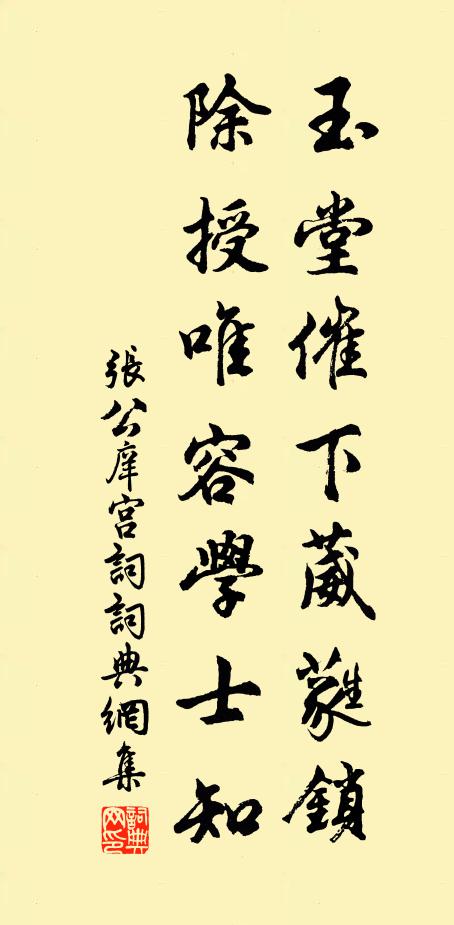 玉堂催下葳蕤鎖
除授唯容學士知
張公庠宮詞詞典網集
詞典网印